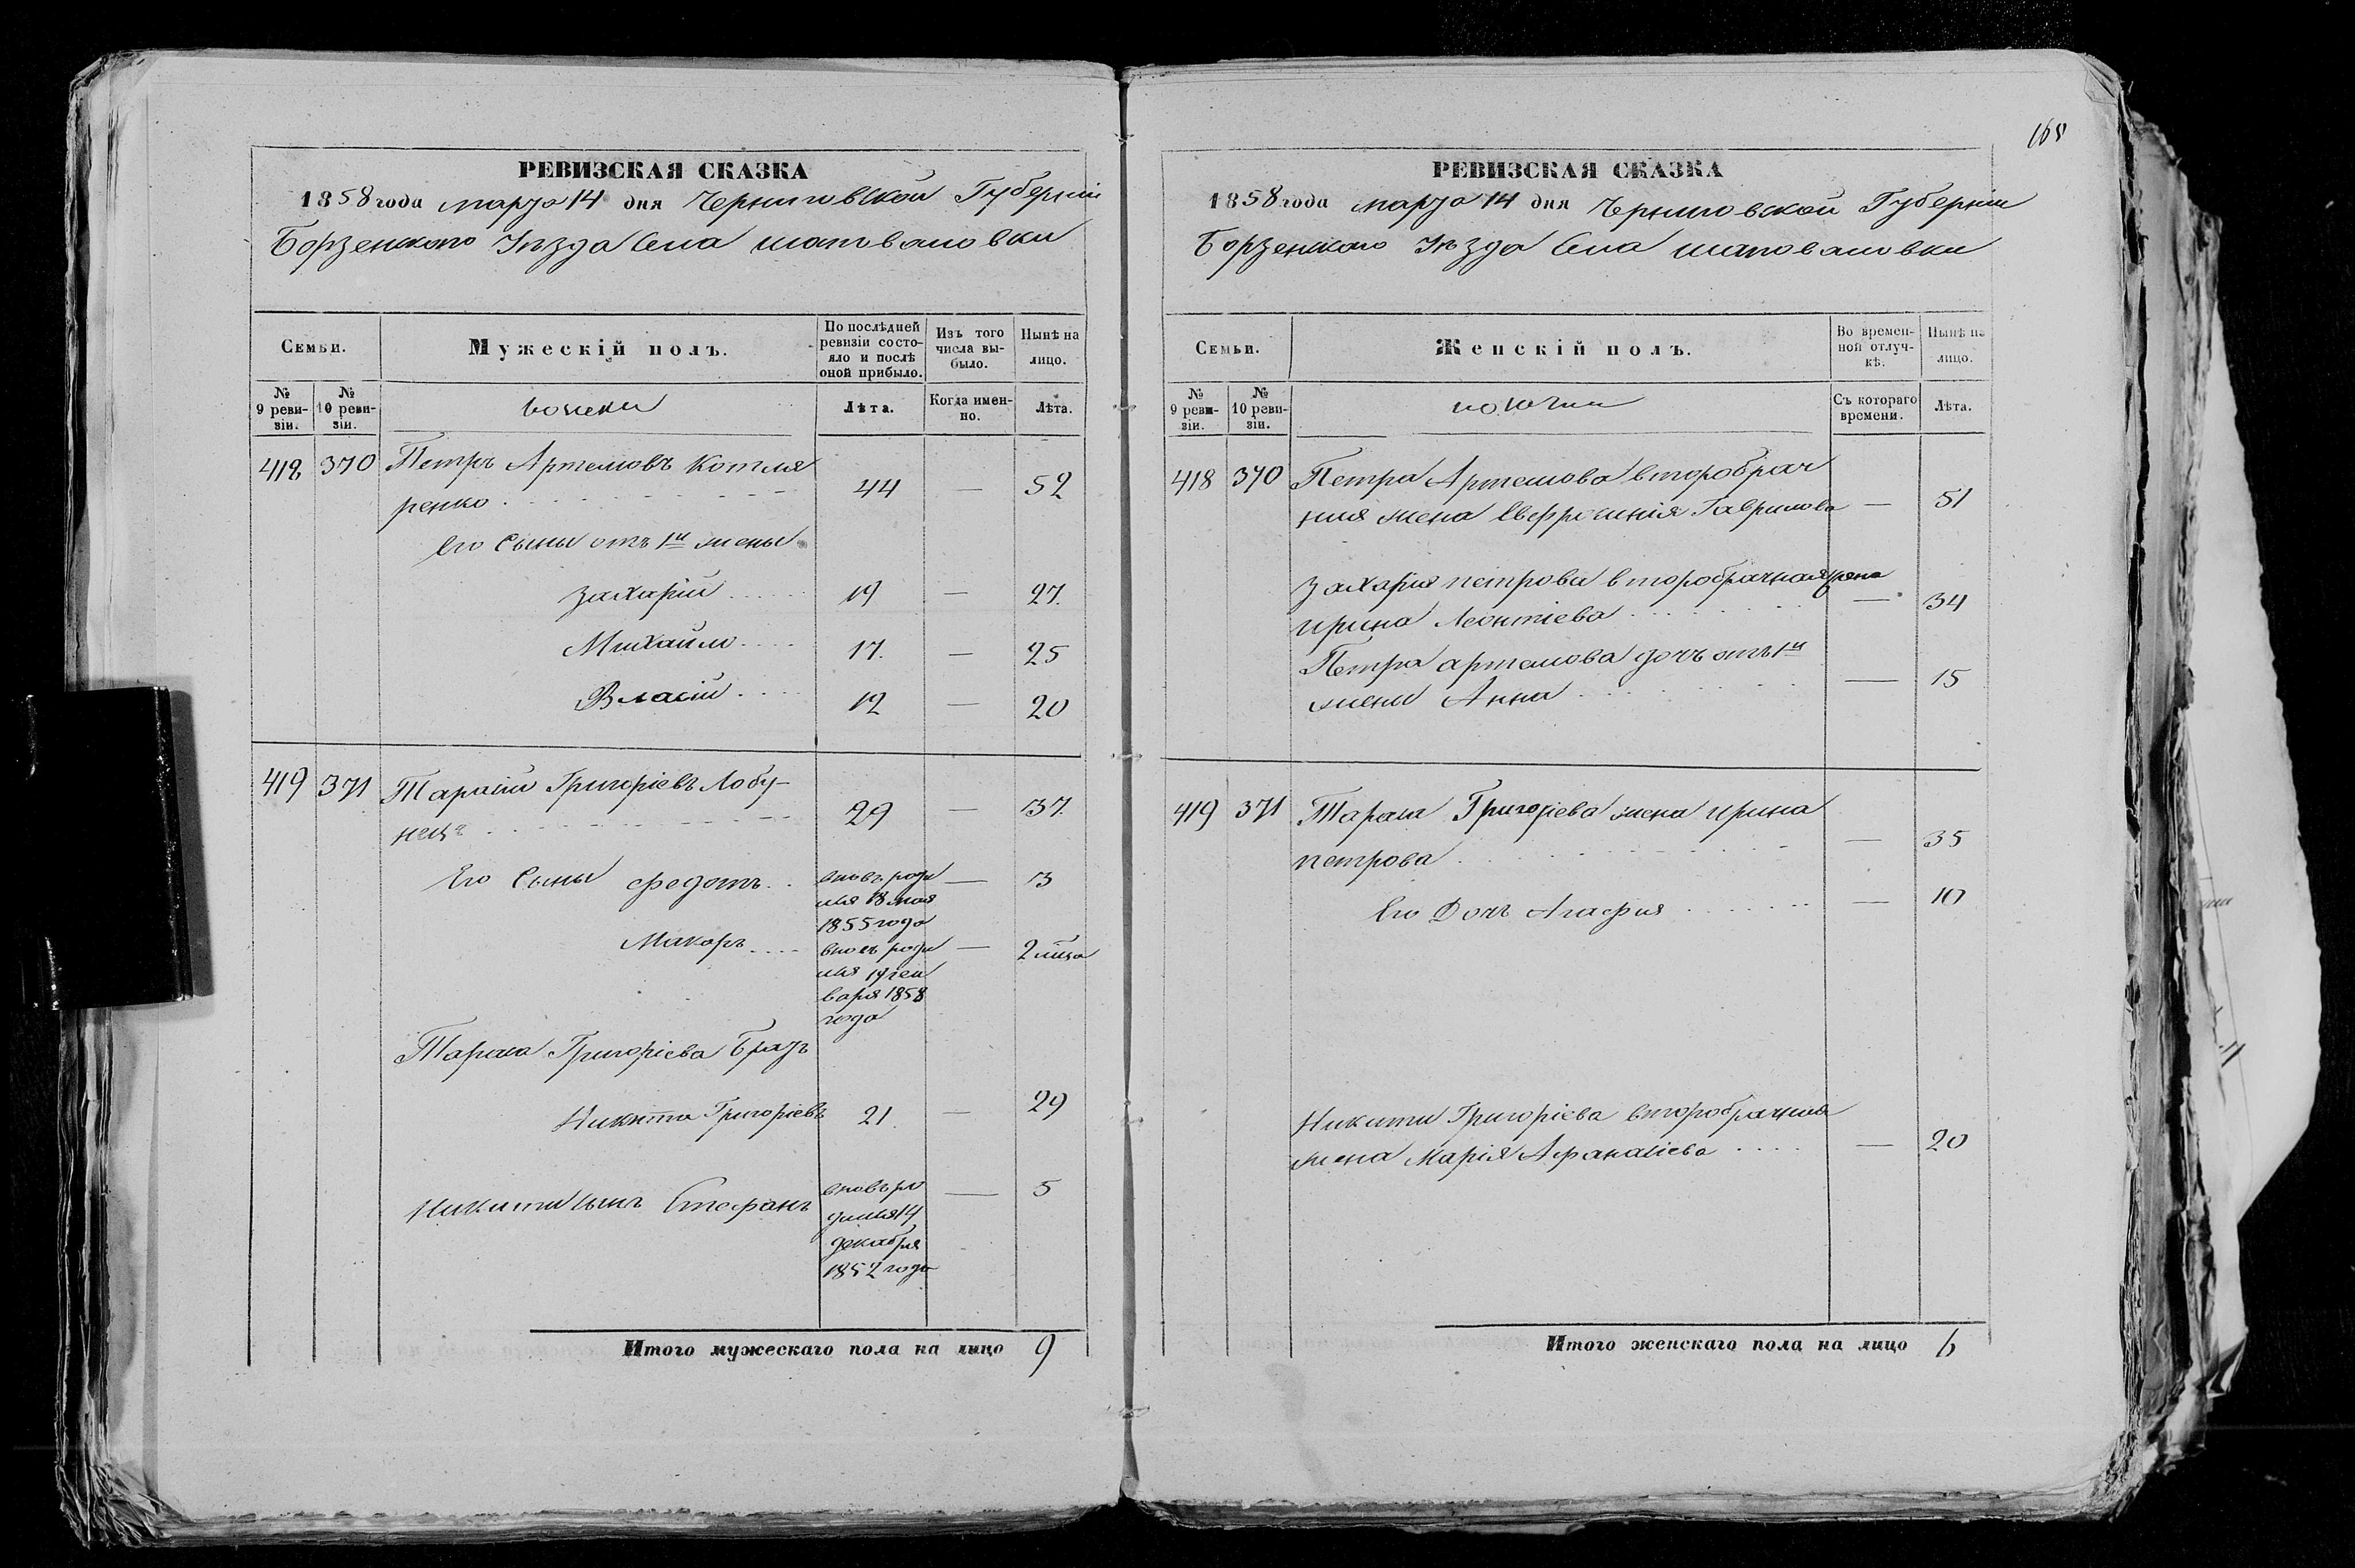 РЕВИЗСКАЯ СКАЗКА
1858 года марта 14 дня Черниговской Губерніи
Борзенского Уѣзда Села шаповаловки
Семьи.
Мужескій полъ.
По послѣдней ревизіи состояло и послѣ оной прибыло.
Изъ того числа выбыло.
Нынѣ на лицо.
№ 9 ревизіи.
№ 10 ревизіи.
Лѣта.
Когда именно.
Лѣта.
418 370 Петръ Артемовъ Котля
ренко 44 — 52
Его Сыны отъ 1й жены
Захарій 19 — 27.
Михайло 17. — 25
Власій 12 — 20
419 371 Тарасій Григоріевъ Лобу-
нецъ 29 — 37.
Его Сыны Федотъ вновь роди — 3
лся 18 мая
1855 года
Макаръ вновь роди — 2 мѣца
лся 19 ген
варя 1858
года
Тараса Григоріева Братъ
Никита Григоріевъ 21. — 29
Никити сынъ Стефанъ вновь ро — 5
дился 14
декабря
1852 года
Итого мужескаго пола на лицо 9
168
РЕВИЗСКАЯ СКАЗКА
1858 года марта 14 дня Черниговской Губерніи
Борзенского Уѣзда Села шаповаловки
Семьи.
Женскій полъ.
Во временной отлучкѣ.
Нынѣ на лицо.
№ 9 ревизіи.
№ 10 ревизіи.
Съ котораго времени.
Лѣта.
418 370 Петра Артемова второбрач
ная жена Евфросинія Гаврилова — 51
Захарія петрова второбрачная жена
ирина Леонтіева — 34
Петра артемова дочь отъ 1й
жены Анна — 15
419 371 Тараса Григоріева жена ирина
петрова — 35
Его Дочь Агафия — 10
Никити Григоріева второбрачная
жена Марія Афанасіева — 20
Итого женскаго пола на лицо 6